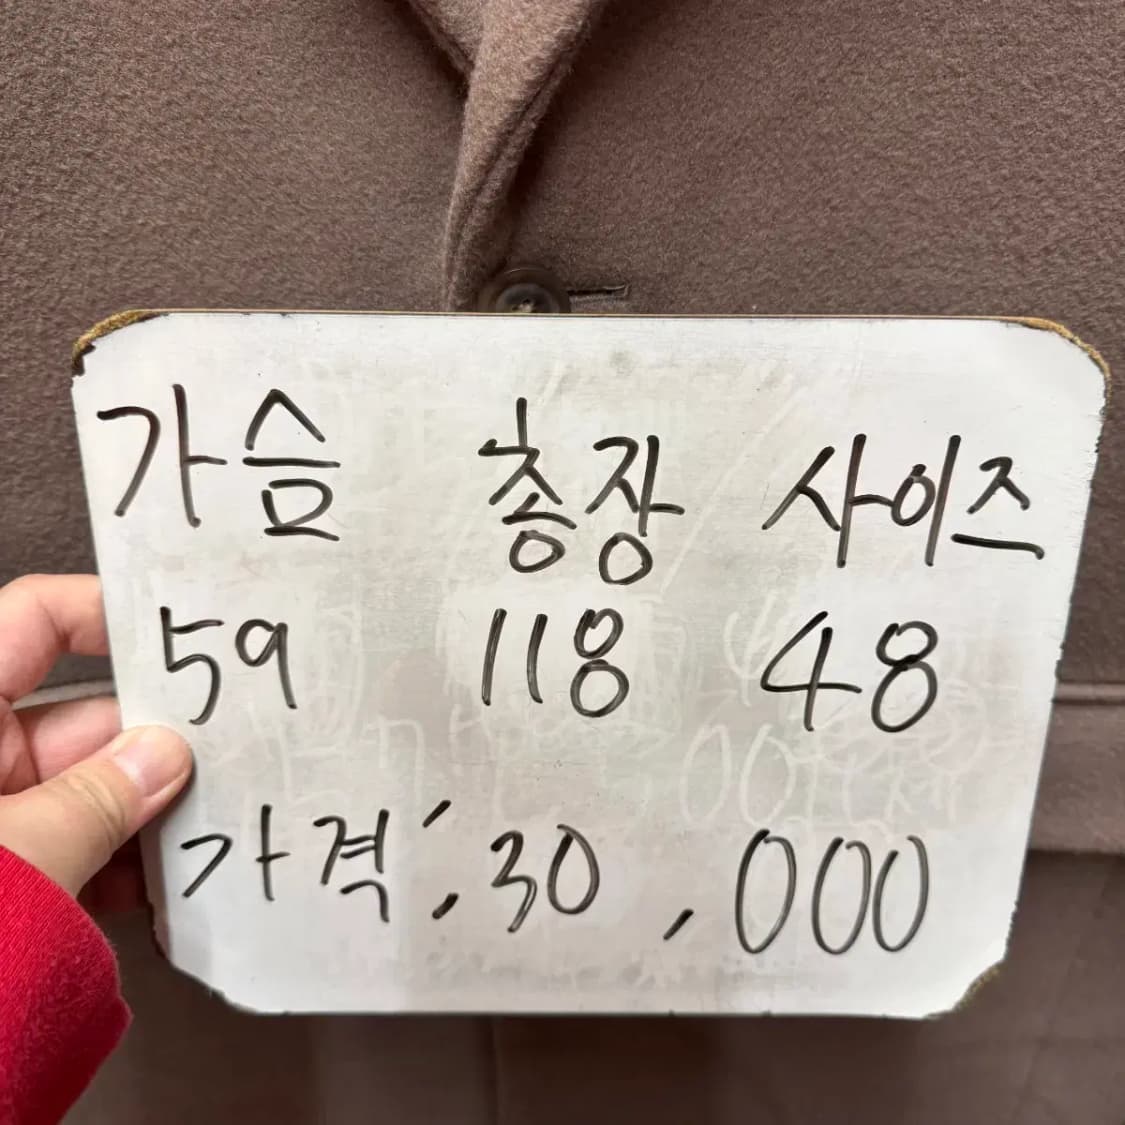 가슴 총장 사이즈
59 118 48
가격: 30,000